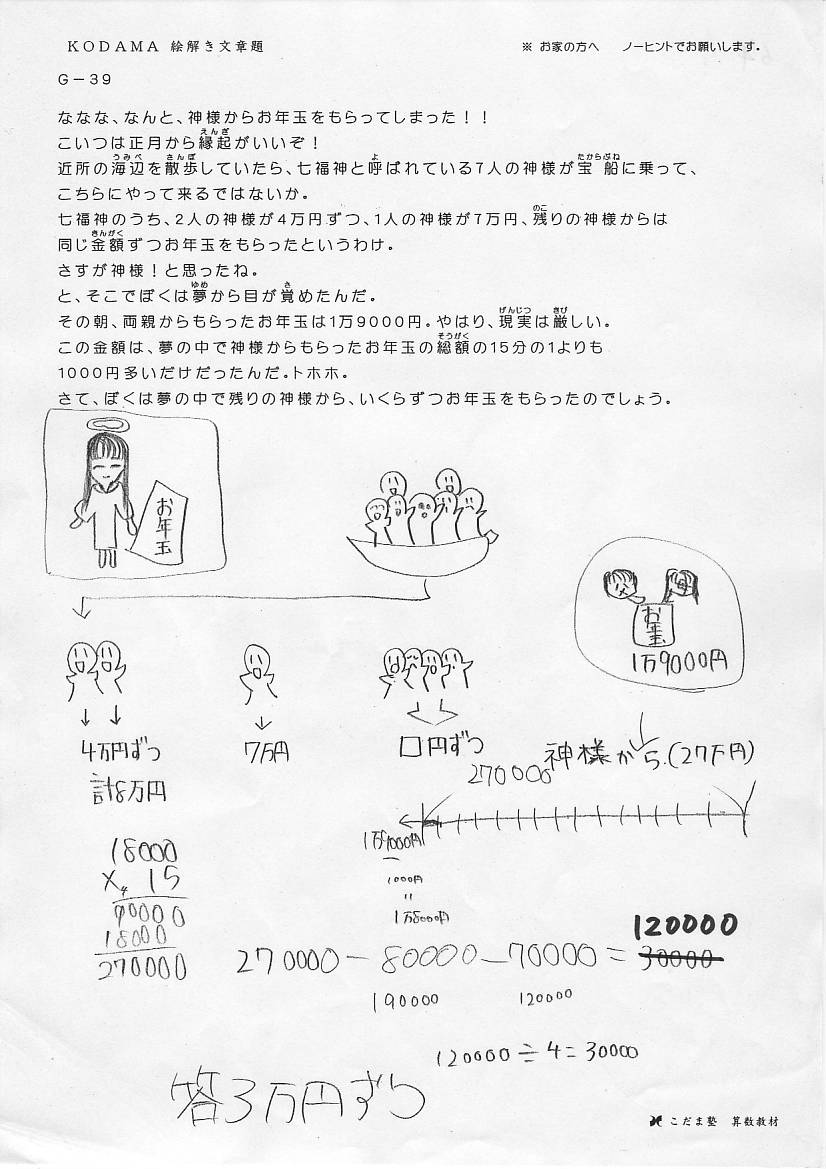 KODAMA 絵解き文章題
※ お家の方へ ノーヒントでお願いします。
G－39
ななな、なんと、神様からお年玉をもらってしまった！！
こいつは正月から縁起がいいぞ！
近所の海辺を散歩していたら、七福神と呼ばれている7人の神様が宝船に乗って、
こちらにやって来るではないか。
七福神のうち、2人の神様が4万円ずつ、1人の神様が7万円、残りの神様からは
同じ金額ずつお年玉をもらったというわけ。
さすが神様！と思ったね。
と、そこでぼくは夢から目が覚めたんだ。
その朝、両親からもらったお年玉は1万9000円。やはり、現実は厳しい。
この金額は、夢の中で神様からもらったお年玉の総額の15分の1よりも
1000円多いだけだったんだ。トホホ。
さて、ぼくは夢の中で残りの神様から、いくらずつお年玉をもらったのでしょう。
お年玉
父 母
お年玉
1万9000円
4万円ずつ
計8万円
7万円
□円ずつ
神様から.(27万円)
270000
1万9000円
－
1000円
=
1万8000円
18000
×4 15
90000
18000
270000
120000
270000－80000－70000＝30000
190000
120000
120000÷4＝30000
答3万円ずつ
こだま塾 算数教材